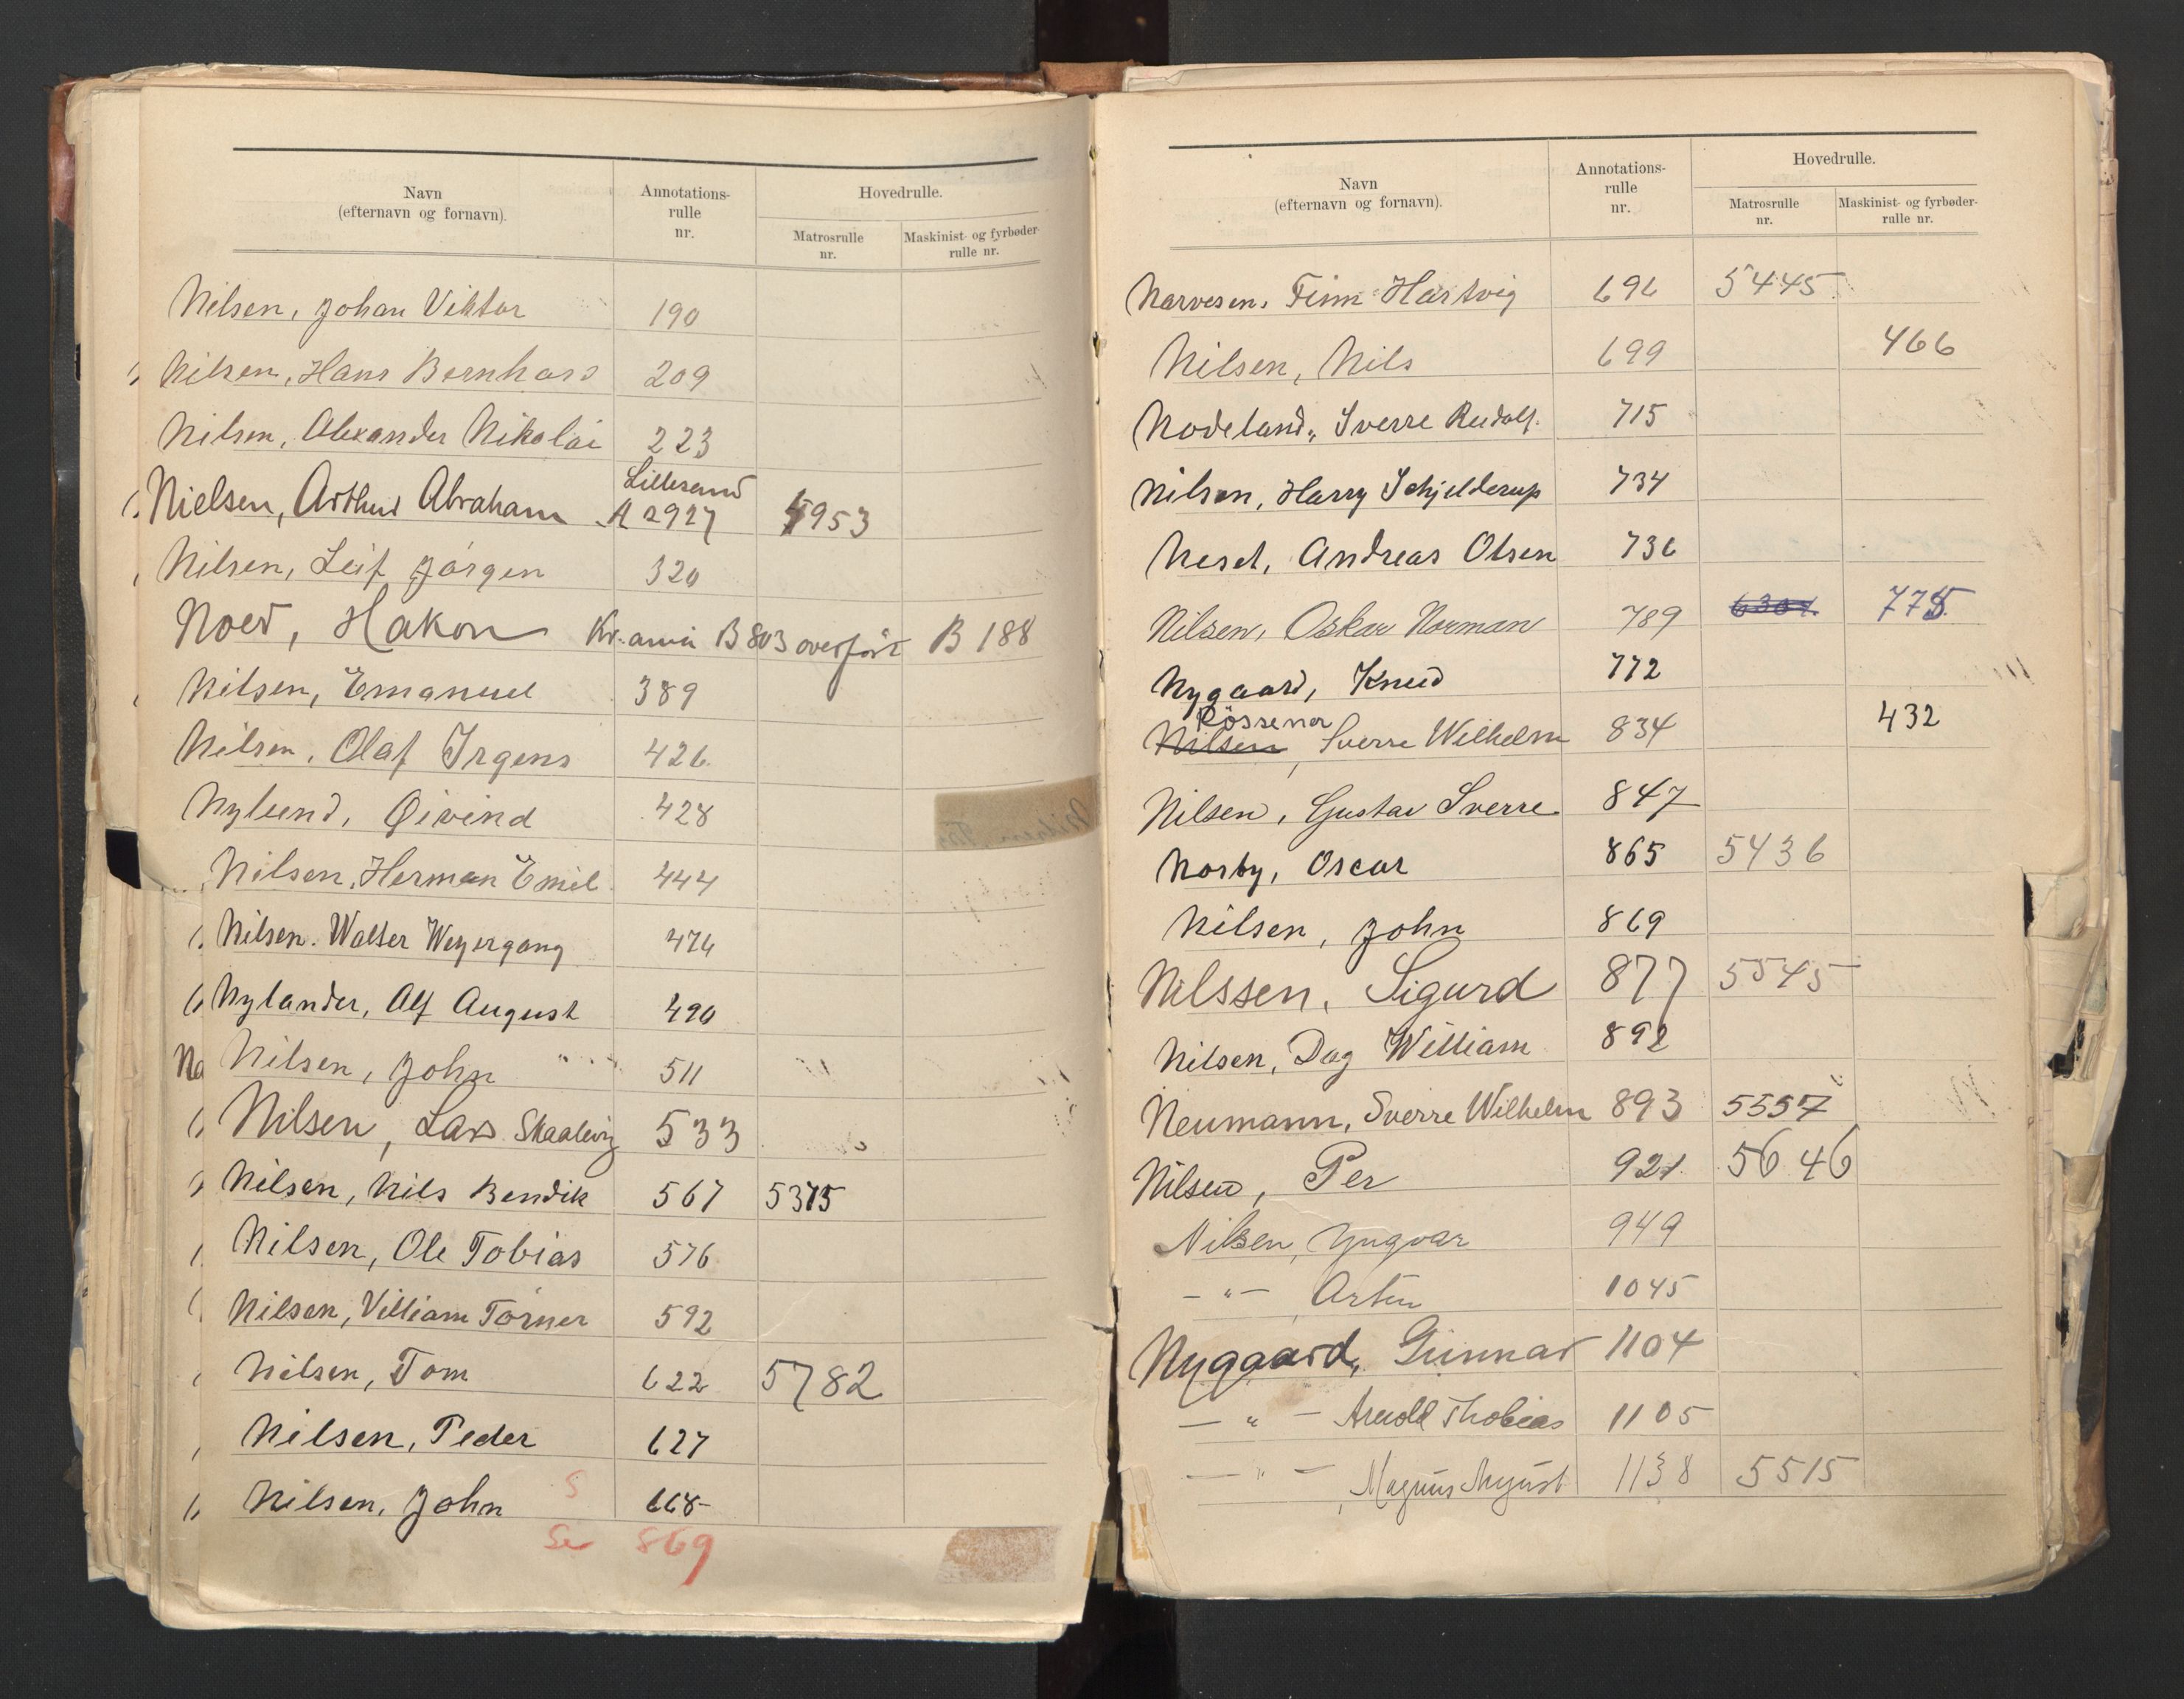 Navn
(efternavn og fornavn).
Annotations-
rulle
nr.
Hovedrulle.
Matrosrulle
nr.
Maskinist- og fyrbøder-
rulle nr.
Nilsen, Johan Viktor 190
Nilsen, Hans Bernhard 209
Nilsen, Alexander Nikolai 223
Nielsen, Arthur Abraham Lillesand A 2927 4953
Nilsen, Leif Jörgen 320
Noed, Hakon Kr.ania B 803 overført B 188
Nilsen, Emanuel 389
Nilsen, Olaf Irgens 426
Nylund, Øivind 428
Nilsen, Herman Emil 444
Nilsen. Walter Weyergang 474
Nylander, Alf August 490
Nilsen, John 511
Nilsen, Lars Skaalevig 533
Nilsen, Nils Bendik 567 5375
Nilsen, Ole Tobias 576
Nilsen, Villiam Törner 592
Nilsen, Tom 622 5782
Nilsen, Peder 627
Nilsen, John 668
Se 869
Navn
(efternavn og fornavn).
Annotations-
rulle
nr.
Hovedrulle.
Matrosrulle
nr.
Maskinist- og fyrbøder-
rulle nr.
Narvesen, Finn Hartvig 696 5445
Nilsen, Nils 699 466
Nodeland, Sverre Rudolf. 715
Nilsen, Harry Schjelderup 734
Neset, Andreas Olsen 736
Nilsen, Oskar Norman 789 6301 775
Nygaard, Knud 772
Rössener
Nilsen, Sverre Wilhelm 834 432
Nilsen, Gustav Sverre 847
Norby, Oscar 865 5436
Nilsen, John 869
Nilssen, Sigurd 877 5545
Nilsen, Dag William 892
Neumann, Sverre Wilhelm 893 5557
Nilsen, Per 921 5646
Nilsen, Yngvar 949
- " - 1045
Nygaard, Gunnar 1104
- " - Arnold Thobias 1105
- " - Magnus August 1138 5515